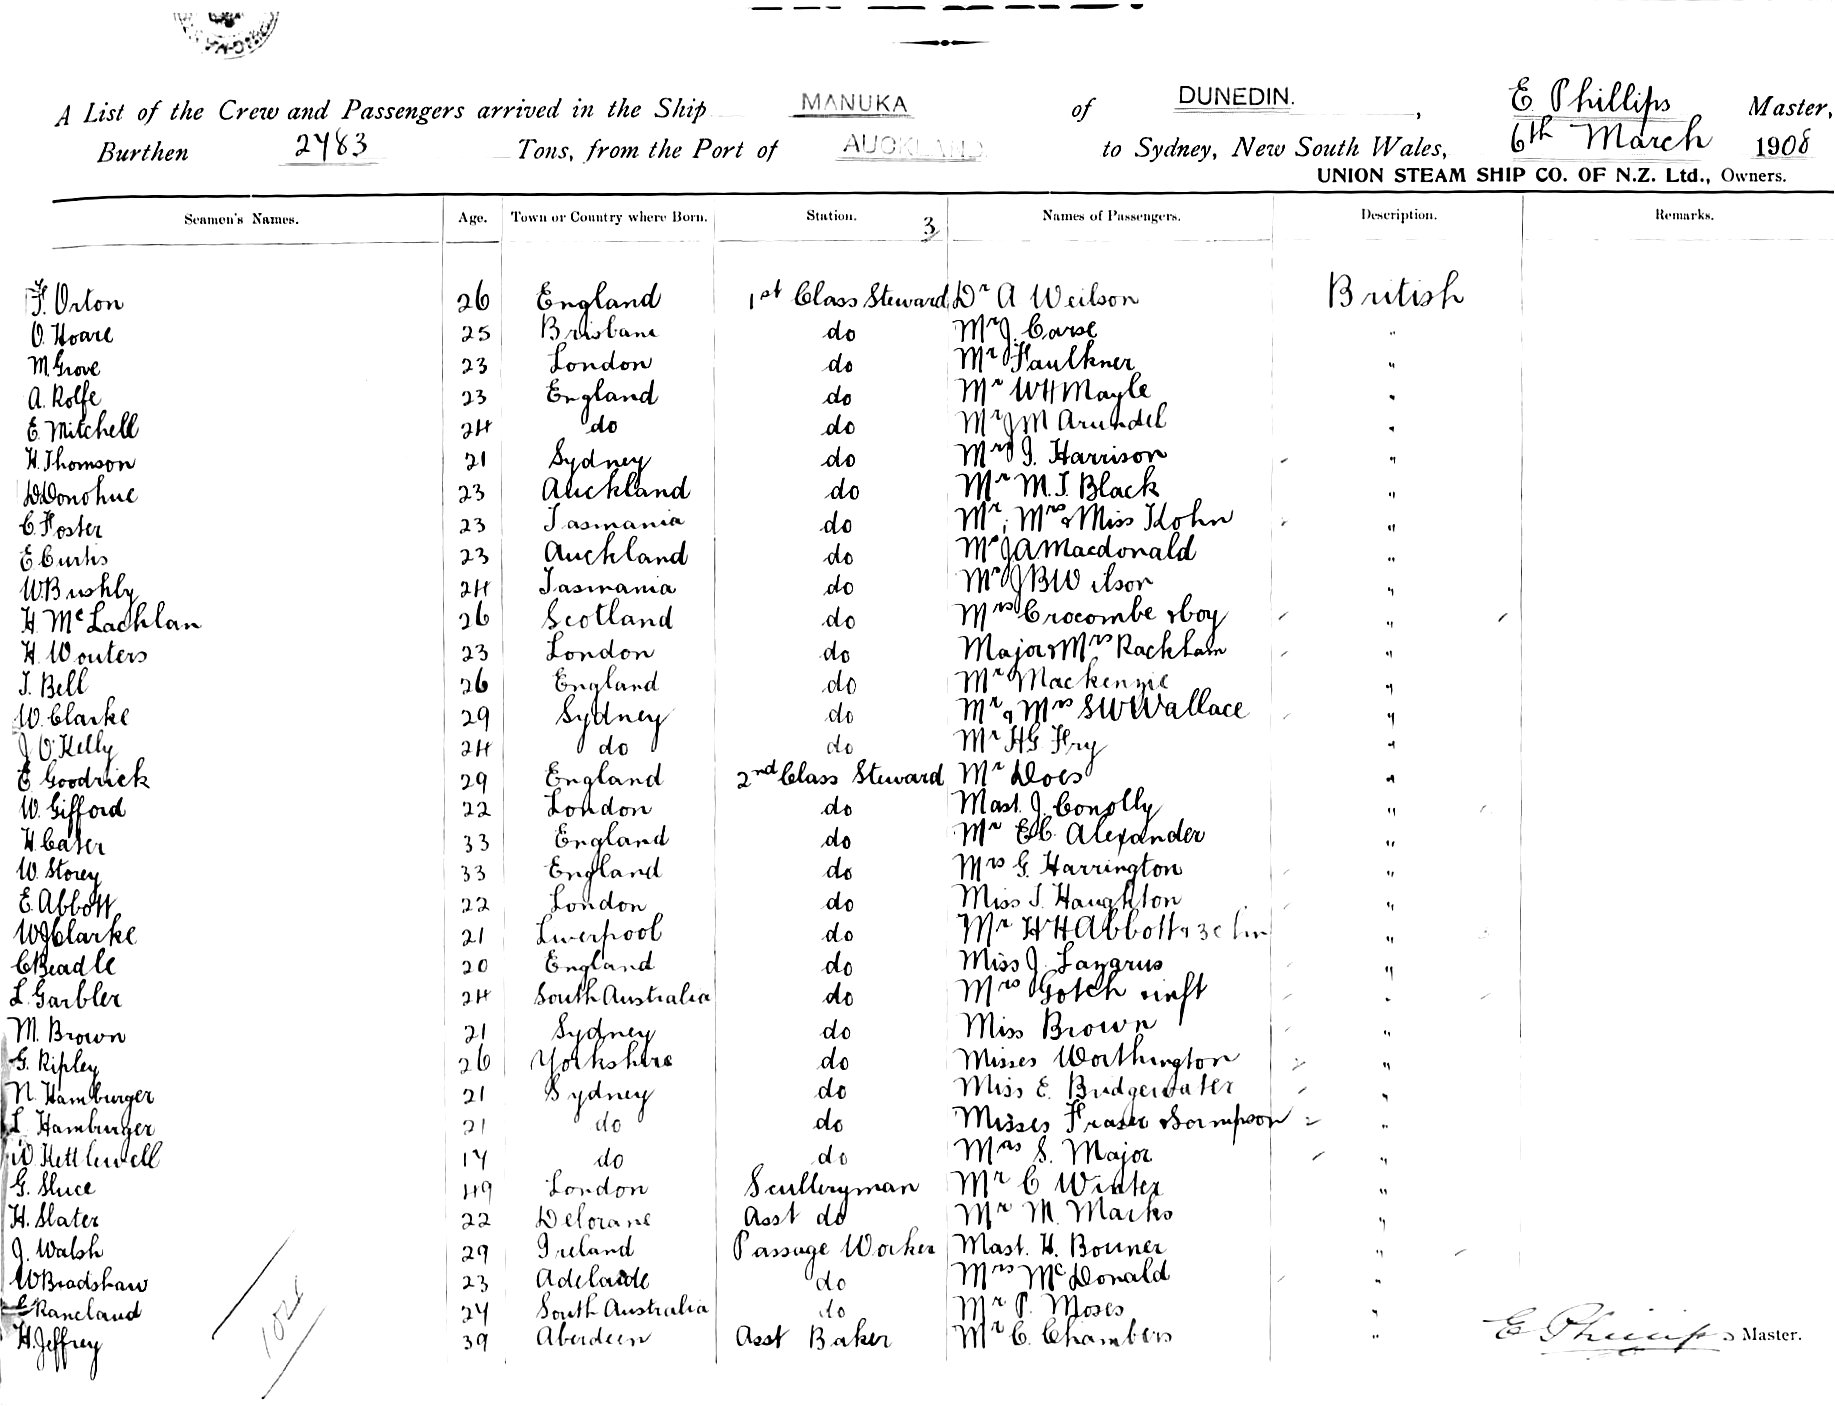 A List of the Crew and Passengers arrived in the Ship MANUKA of DUNEDIN. , E Phillips Master,
Burthen 2483 Tons, from the Port of AUCKLAND to Sydney, New South Wales, 6th March 1908
UNION STEAM SHIP CO. OF N.Z. Ltd., Owners.
Seamen's Names. Age. Town or Country where Born. Station. 3 Names of Passengers. Description. Remarks.
F. Orton 26 England 1st Class Steward Dr A Weilson British
O. Hoare 25 Brisbane do Mr J. Carse "
M Grove 23 London do Mr Faulkner "
A. Rolfe 23 England do Mr W H Mayle "
E. Mitchell 24 do do Mr J M Arundel "
H. Thomson 21 Sydney do Mrs J. Harrison "
D Donohue 23 Auckland do Mr M. J. Black "
C. Foster 23 Tasmania do Mr, Mrs & Miss Kohn "
E. Curtis 23 Auckland do Mr J A Macdonald "
W. Bushby 24 Tasmania do Mr J B Wilson "
H. McLachlan 26 Scotland do Mrs Crocombe & boy "
H. Wouters 23 London do Major & Mrs Rackham "
J. Bell 26 England do Mr Mackenzie "
W. Clarke 29 Sydney do Mr & Mrs S W Wallace "
J O'Kelly 24 do do Mr H G Fry "
E Goodrick 29 England 2nd Class Steward Mr Does "
W. Gifford 22 London do Mast. J. Conolly "
H. Cater 33 England do Mr E C Alexander "
W. Storey 33 England do Mrs G. Harrington "
E. Abbott 22 London do Miss J. Haughton "
W J Clarke 21 Liverpool do Mr H H Abbott & 3 chn "
C Beadle 20 England do Miss J. Lazarus "
L. Garbler 24 South Australia do Mrs Gotch & inft "
M. Brown 21 Sydney do Miss Brown "
G. Ripley 26 Yorkshire do Misses Worthington "
N. Hamburger 21 Sydney do Miss E. Bridgewater "
L. Hamburger 21 do do Misses Fraser "
W Kettlewell 17 do do Mrs S. Major "
G. Sluce 49 London Sculleryman Mr C Winter "
H. Slater 22 Delorane Asst do Mr M. Marks "
J. Walsh 29 Ireland Passage Worker Mast. H. Bonner "
W Bradshaw 23 Adelaide do Mrs McDonald "
Raneland 24 South Australia do Mr P. Moses "
H. Jeffrey 39 Aberdeen Asst Baker Mr C. Chambers "
E Phillips Master.